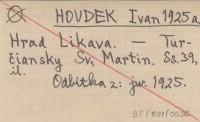 HOUDEK Ivan 1925a.
Hrad Likava. — Tur-
čiansky Sv. Martin. Ss. 39,
il.
Odbitka z: jur. 1925.